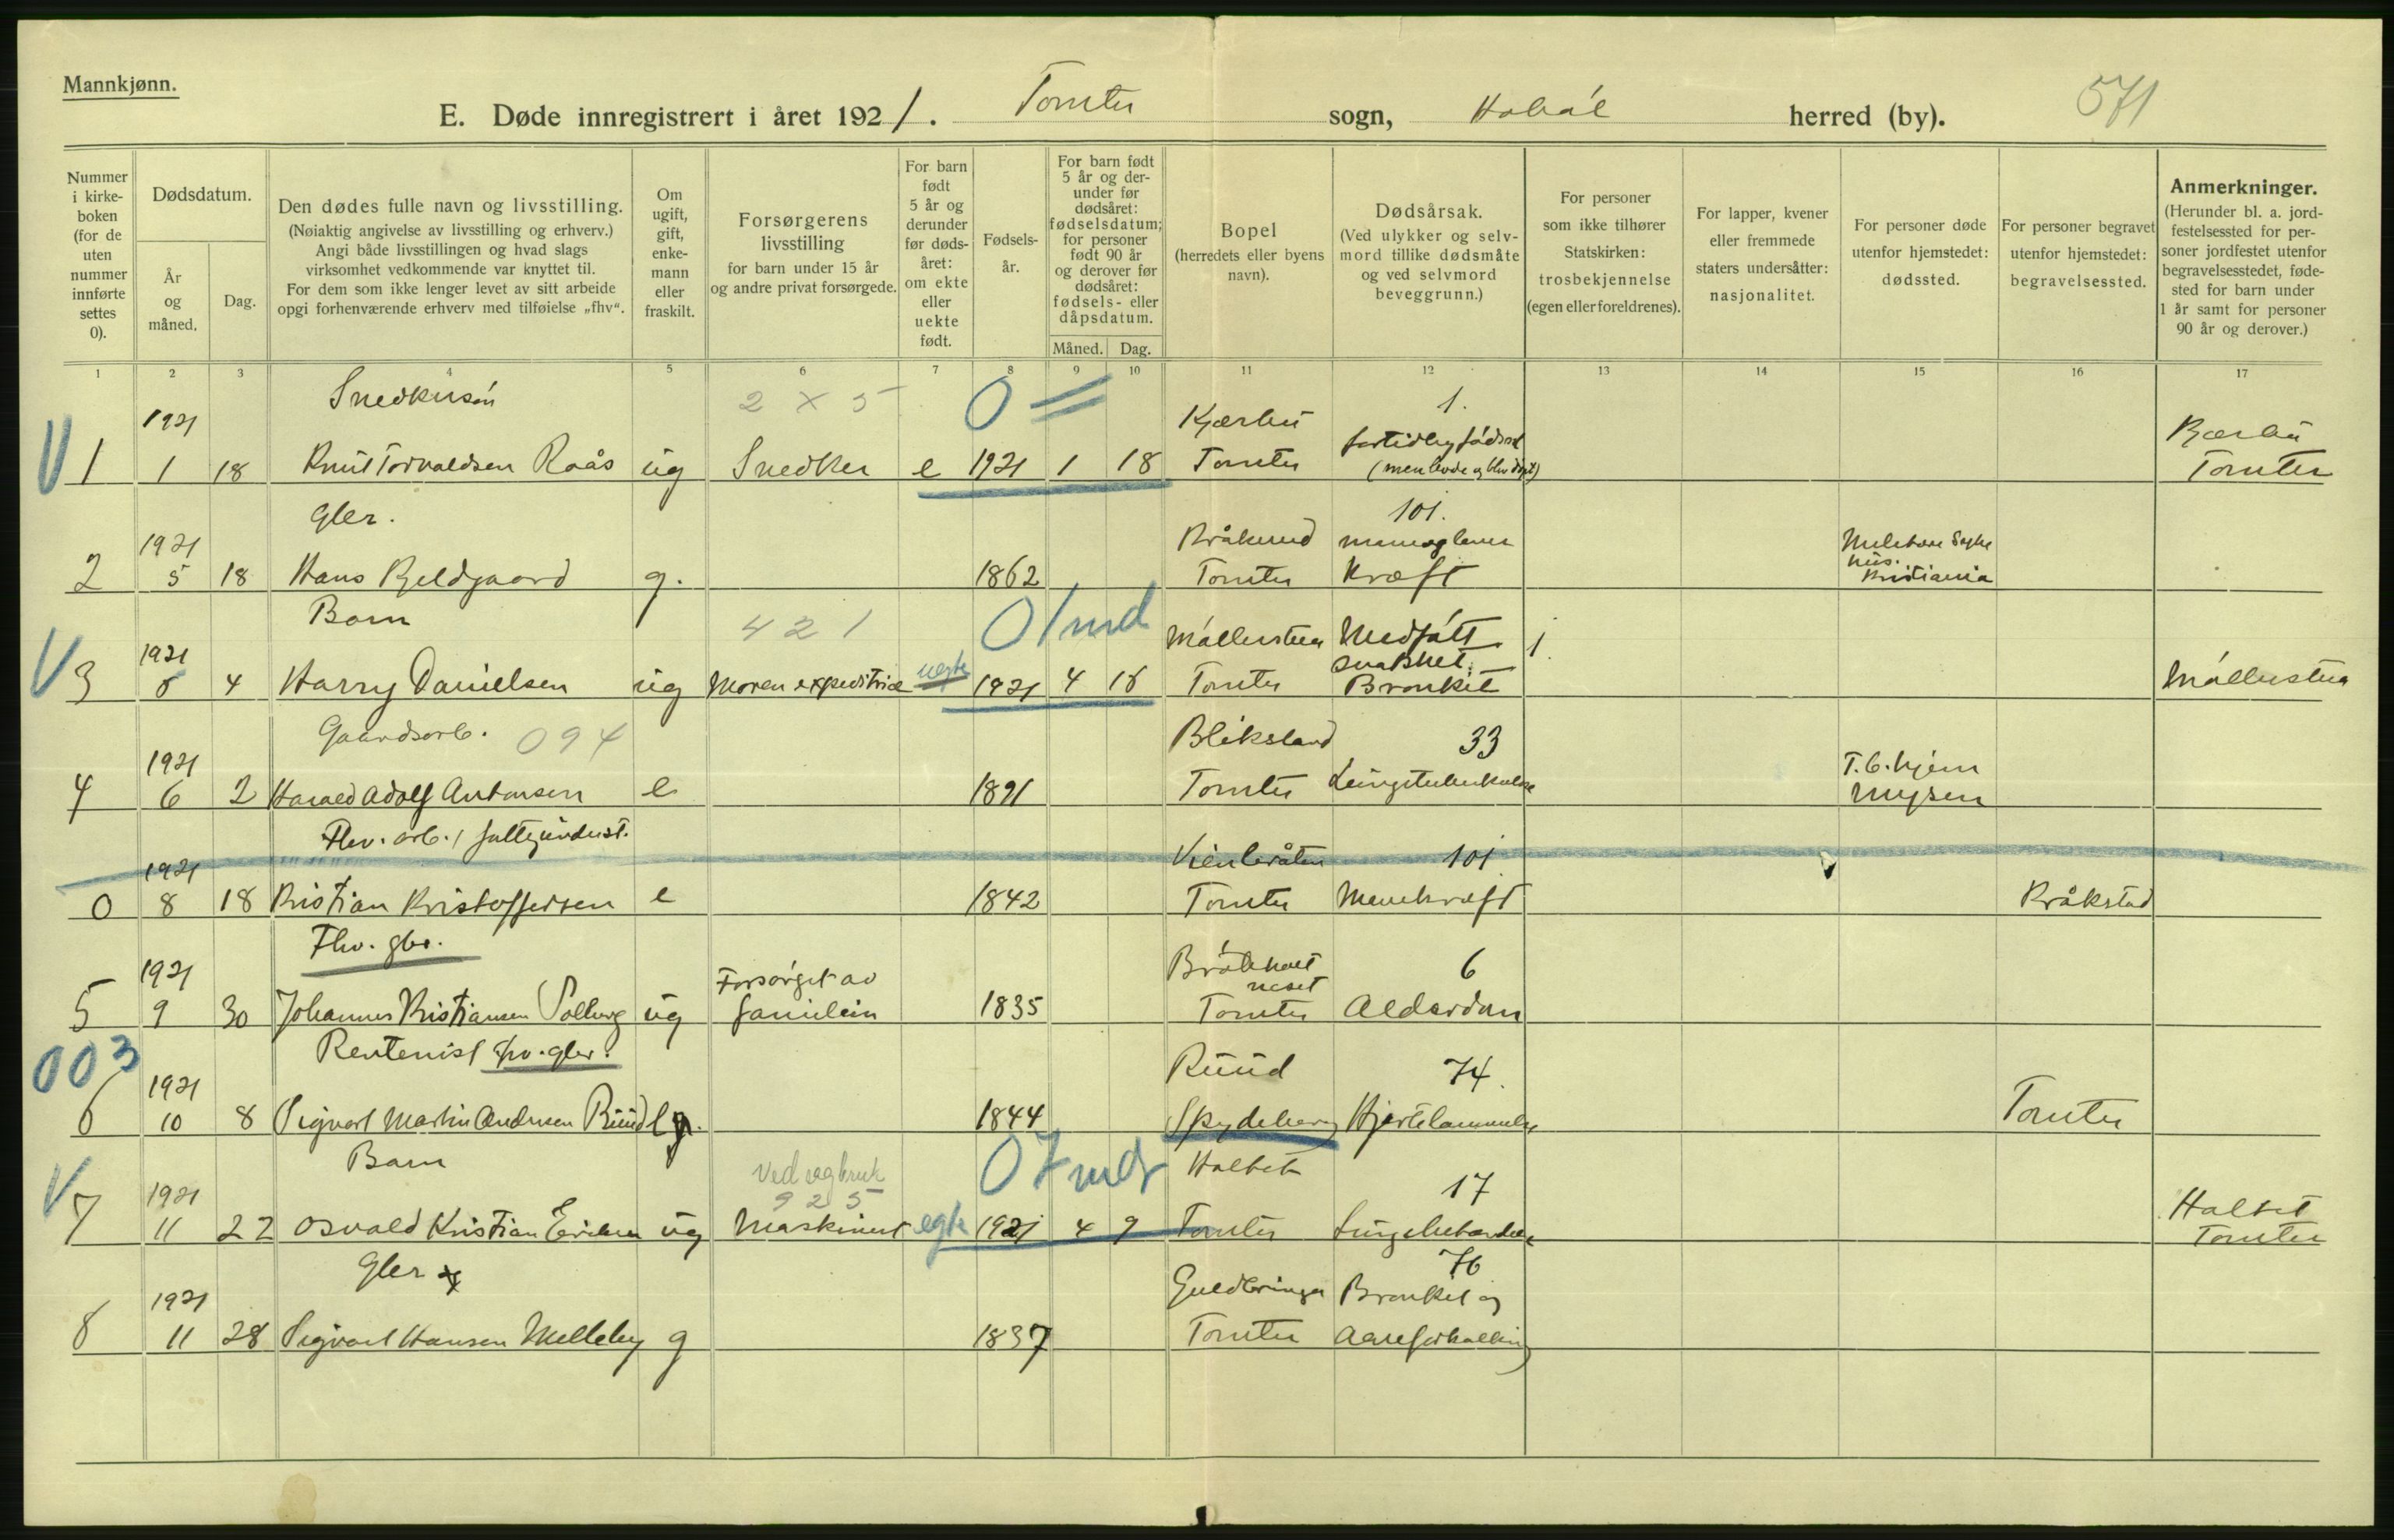 Mannkjønn.
E. Døde innregistrert i året 1921. Tomter sogn, Hobøl herred (by). 571
Nummer i kirke-boken (for de uten nummer innførte settes 0).
Dødsdatum.
År og måned.
Dag.
Den dødes fulle navn og livsstilling.
(Nøiaktig angivelse av livsstilling og erhverv.)
Angi både livsstillingen og hvad slags
virksomhet vedkommende var knyttet til.
For dem som ikke lenger levet av sitt arbeide
opgi forhenværende erhverv med tilføielse „fhv“.
Om ugift, gift, enke-mann eller fraskilt.
Forsørgerens livsstilling
for barn under 15 år
og andre privat forsørgede.
For barn født 5 år og derunder før døds-året: om ekte eller uekte født.
Fødsels-år.
For barn født 5 år og der-under før dødsåret: fødselsdatum; for personer født 90 år og derover før dødsåret: fødsels- eller dåpsdatum.
Måned. Dag.
Bopel
(herredets eller byens navn).
Dødsårsak.
(Ved ulykker og selv-mord tillike dødsmåte og ved selvmord beveggrunn.)
For personer som ikke tilhører Statskirken: trosbekjennelse (egen eller foreldrenes).
For lapper, kvener eller fremmede staters undersåtter: nasjonalitet.
For personer døde utenfor hjemstedet: dødssted.
For personer begravet utenfor hjemstedet: begravelsessted.
Anmerkninger.
(Herunder bl. a. jord-festelsessted for per-soner jordfestet utenfor begravelsesstedet, føde-sted for barn under 1 år samt for personer 90 år og derover.)
1 2 3 4 5 6 7 8 9 10 11 12 13 14 15 16 17
2 X 5 0 = 1.
1921 Kjærbu
V 1 1 18 Knut Torvaldsen Raås ug Snedker e 1921 1 18 Tomter Tomter
Gbr. 101.
1921 Kristiania
2 5 18 Hans Kjeldgaard g. 1862 Tomter Kræft
Barn 421 0 1 md Møllerstua Medfött 1.
1921 svakhet.
V 3 4 Harry Danielsen ug Moren expeditrice uegte 1921 4 Tomter Bronkit Møllerstua
Gaardsarb. 094 Bliksland 33
1921 T.b.hjem
4 6 2 Harald Adolf Antonsen e 1891 Tomter Lungetuberkulose Mysen
Fhv. arb. 101
1921
0 8 18 Kristian Kristoffersen e 1842 Tomter Mavekræft Kråkstad
Fhv. gbr. 6
1921 Forsørget av
5 9 30 Johannes Kristiansen Solberg ug familien 1835 Tomter Alderdom
003 Rentenist fhv. gbr. Ruud 74.
1921
6 10 8 Sigvart Martin Andresen Ruud g. 1844 Spydeberg Hjertelammelse Tomter
Barn Ved sagbruk 0 7 mdr 17
1921 925
V 7 11 22 Osvald Kristian ug Maskinist egte 1921 4 9 Tomter Tomter
Gbr 76
1921 Guldbringa Bronkit og
8 11 28 Sigvart Hansen Melleby g 1837 Tomter Aareforkalkning